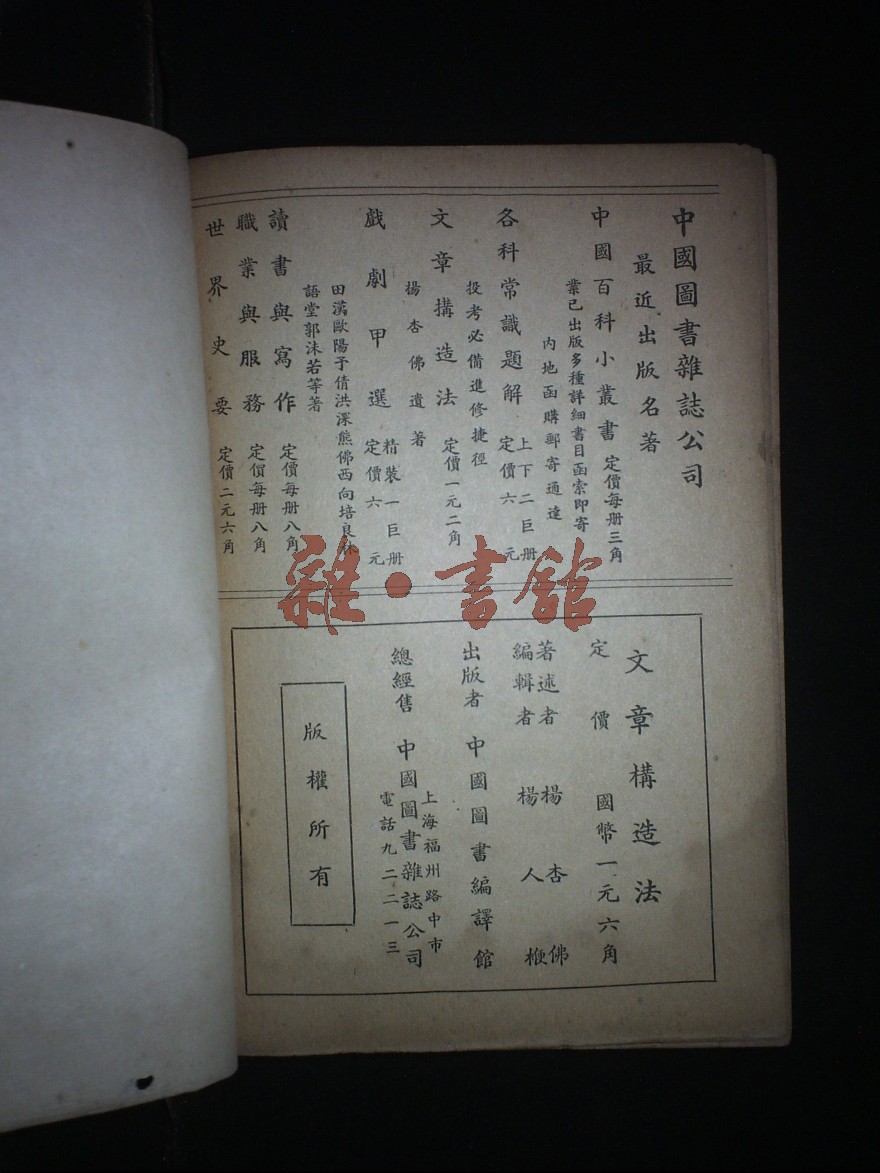 中國圖書雜誌公司
最近出版名著
中國百科小叢書 定價每册三角
業已出版多種詳細書目函索即寄
內地函購郵寄通達
各科常識題解 上下二巨册 定價六元
投考必備進修捷徑
文章構造法 定價一元二角
楊杏佛遺著
戲劇甲選 精裝一巨册 定價六元
田漢歐陽予倩洪深熊佛西向培良林
語堂郭沫若等著
讀書與寫作 定價每册八角
職業與服務 定價每册八角
世界史要 定價二元六角
雜·書館
文章構造法
定價 國幣一元六角
著述者 楊杏佛
編輯者 楊人楩
出版者 中國圖書編譯館
總經售 中國圖書雜誌公司
上海福州路中市
電話九二二一三
版權所有